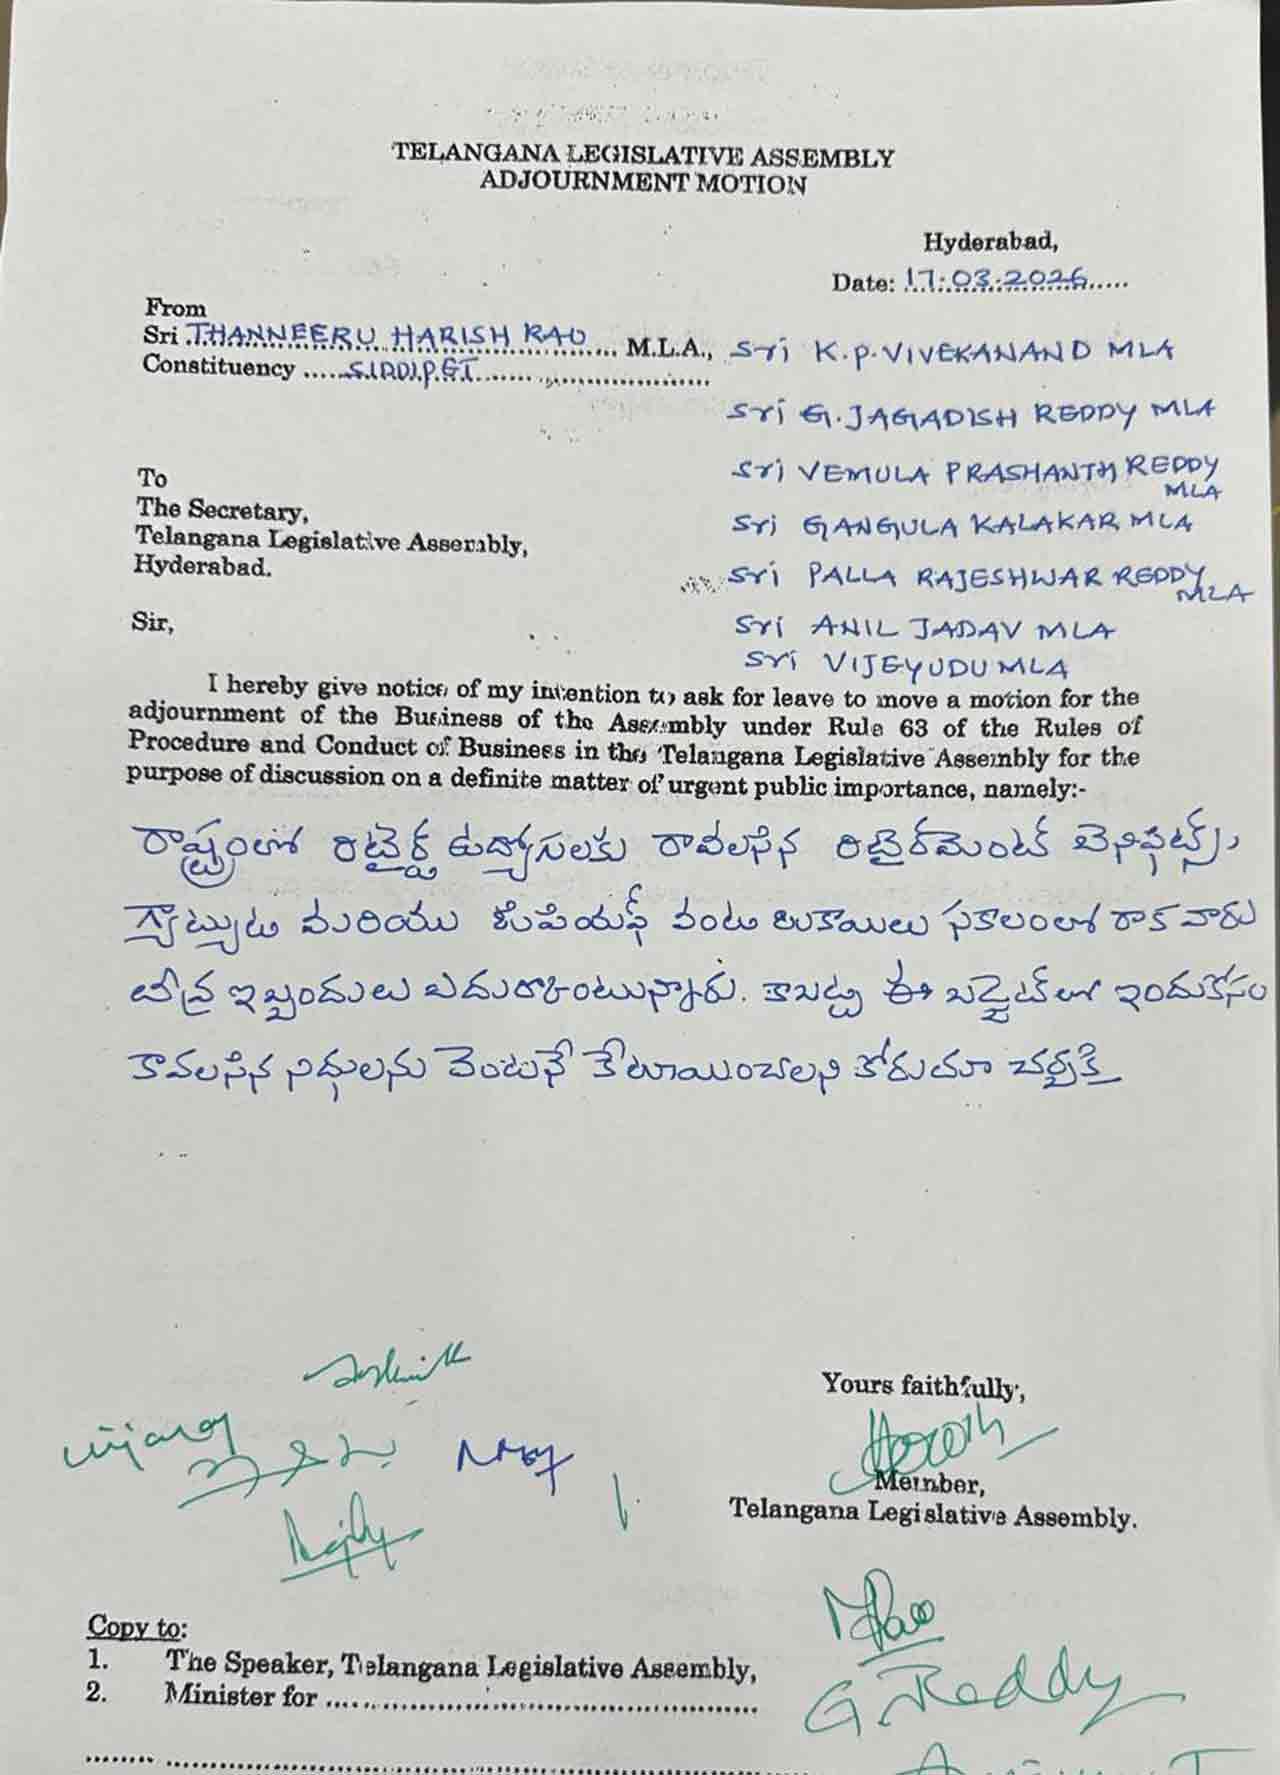 TELANGANA LEGISLATIVE ASSEMBLY
ADJOURNMENT MOTION
Hyderabad,
Date: 17.03.2026
From
Sri THANNEERU HARISH RAO M.L.A.,
Constituency SIDDIPET
Sri K.P. VIVEKANAND MLA
Sri G. JAGADISH REDDY MLA
Sri VEMULA PRASHANTH REDDY
MLA
Sri GANGULA KALAKAR MLA
Sri PALLA RAJESHWAR REDDY
MLA
Sri ANIL JADAV MLA
Sri VIJEYUDU MLA
To
The Secretary,
Telangana Legislative Assembly,
Hyderabad.
Sir,
I hereby give notice of my intention to ask for leave to move a motion for the
adjournment of the Business of the Assembly under Rule 63 of the Rules of
Procedure and Conduct of Business in the Telangana Legislative Assembly for the
purpose of discussion on a definite matter of urgent public importance, namely:-
రాష్ట్రంలో రిటైర్డ్ ఉద్యోగులకు రావలసిన రిటైర్‌మెంట్ బెనిఫిట్స్,
గ్రాట్యుటి మరియు జిపియఫ్ వంటి బకాయిలు సకాలంలో రాక వారు
తీవ్ర ఇబ్బందులు ఎదుర్కొంటున్నారు. కాబట్టి ఈ బడ్జెట్ లో ఇందుకోసం
కావలసిన నిధులను వెంటనే కేటాయించాలని కోరుతూ చర్చకై
Yours faithfully,
Member,
Telangana Legislative Assembly.
G. Reddy
Copy to:
1. The Speaker, Telangana Legislative Assembly,
2. Minister for